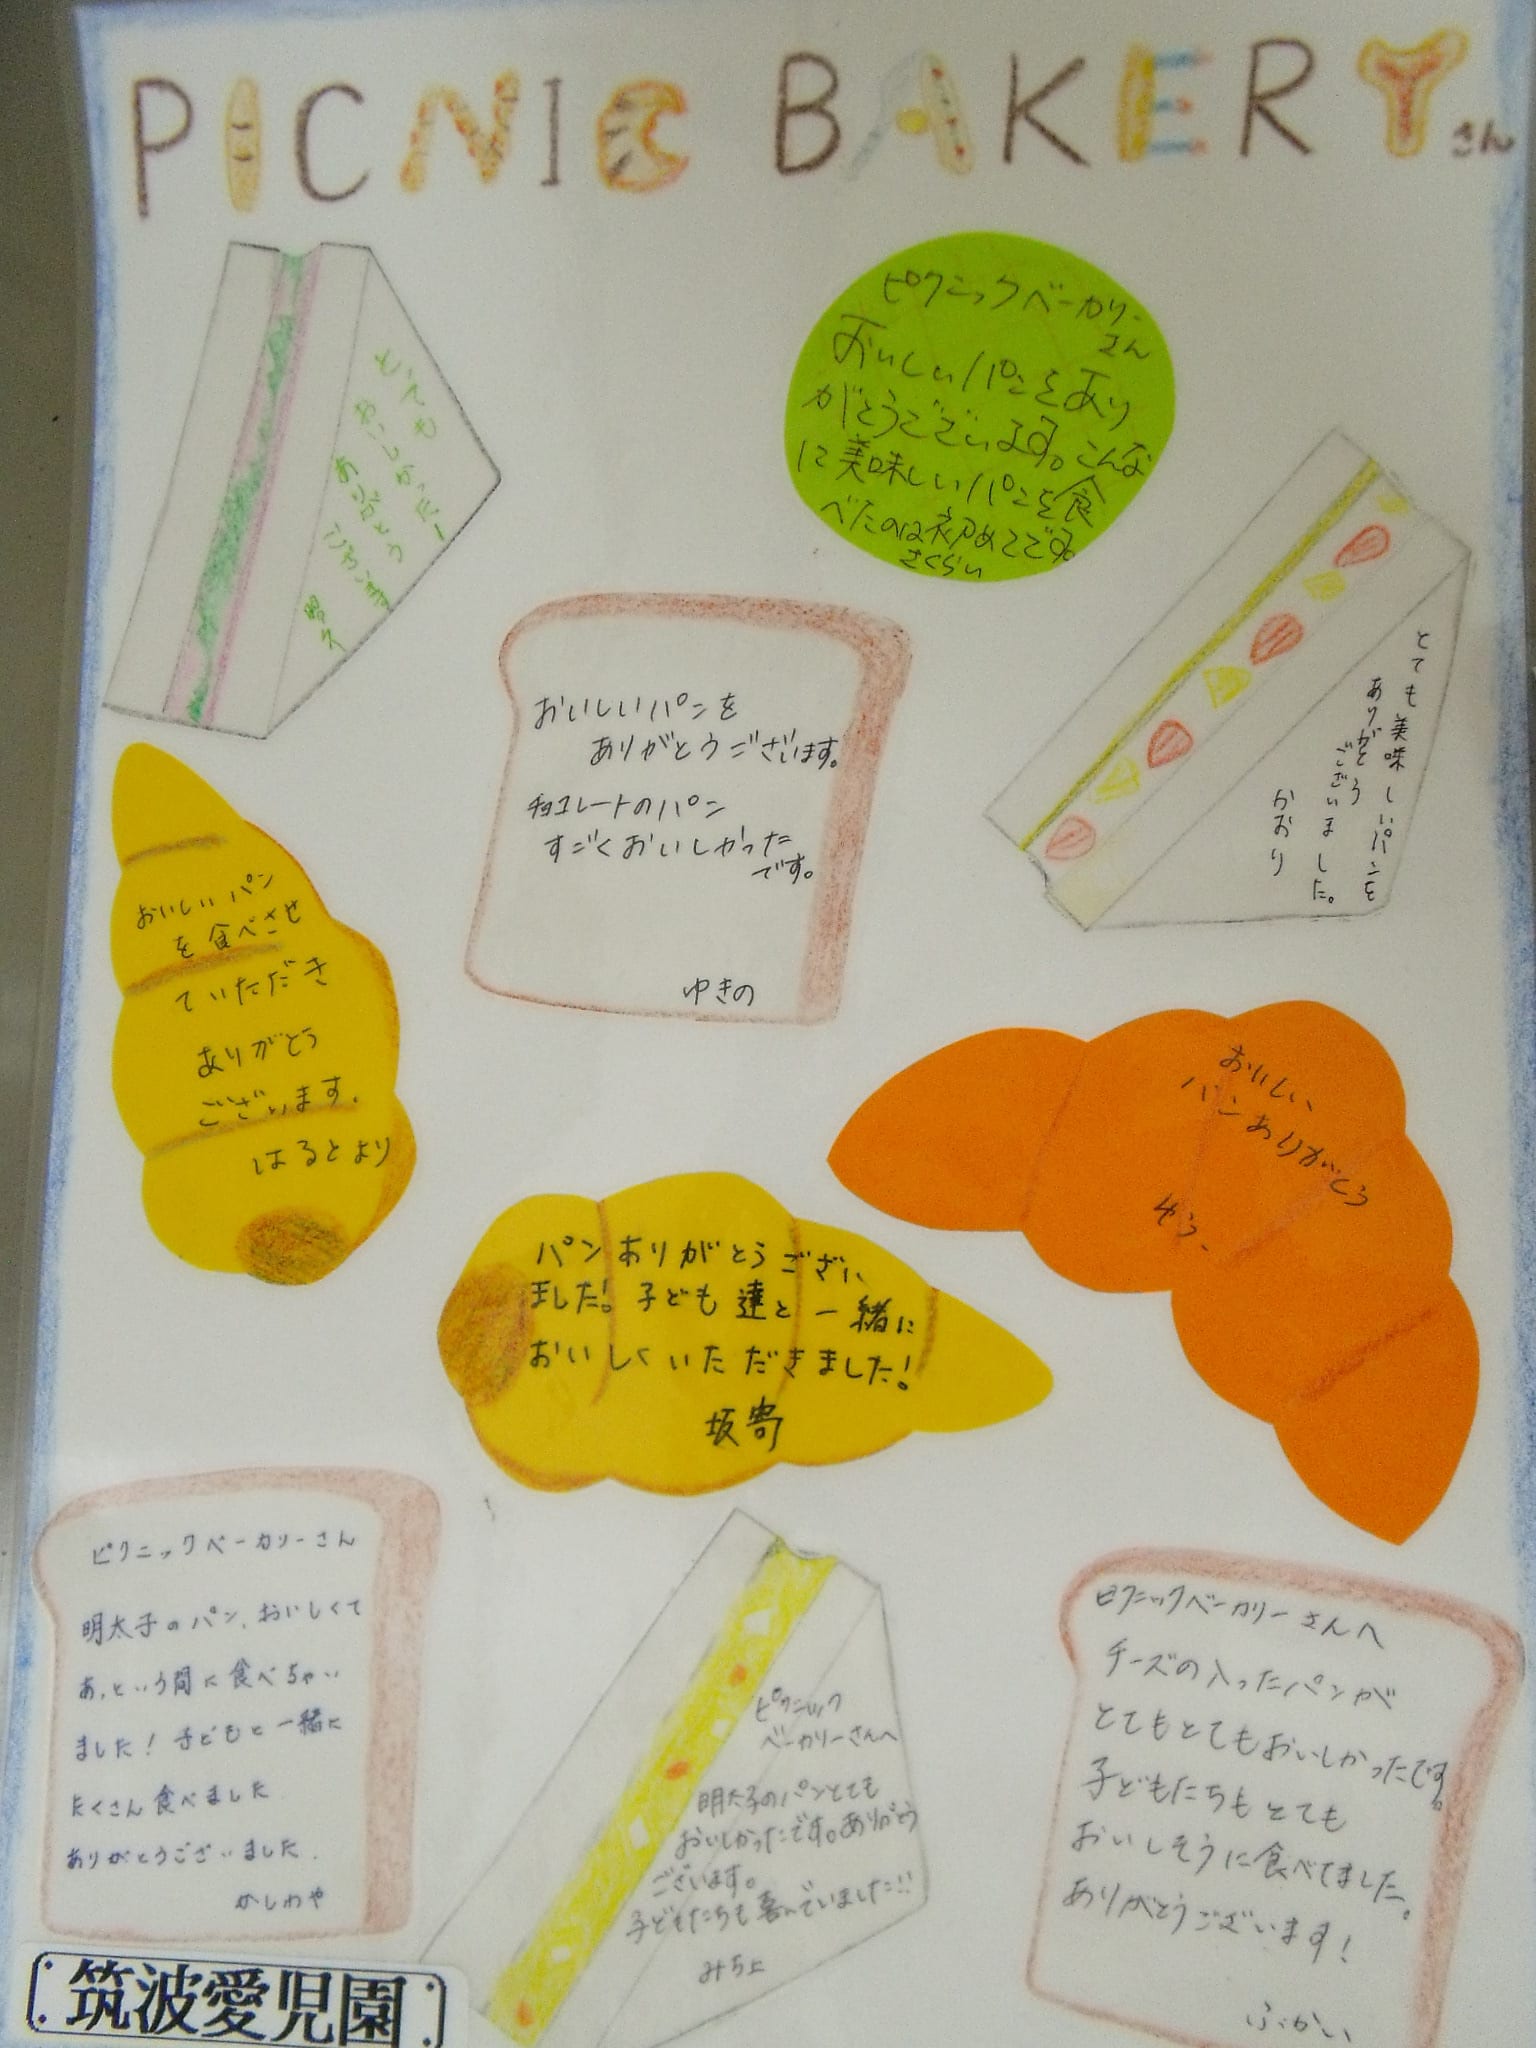 PICNIC BAKERY さん
とっても
おいしかったー
ありがとう
ございます
昭久
ピクニックベーカリー
さん
おいしいパンをあり
がとうございます。こんな
に美味しいパンを食
べたのは初めてです。
さくらい
おいしいパンを
ありがとうございます。
チョコレートのパン
すごくおいしかった
です。
ゆきの
とても美味しいパンを
ありがとう
ございました。
かおり
おいしいパン
を食べさせ
ていただき
ありがとう
ございます.
はるとより
おいしい
パンありがとう
ゆう.
パンありがとうござい
ました!子ども達と一緒に
おいしくいただきました!
坂寄
ピクニックベーカリーさん
明太子のパン、おいしくて
あっという間に食べちゃい
ました!子どもと一緒に
たくさん食べました.
ありがとうございました.
かしわや
ピクニック
ベーカリーさんへ
明太子のパンとても
おいしかったです。ありがとう
ございます。
子どもたちも喜んでいました!!
みちよ
ピクニックベーカリーさんへ
チーズの入ったパンが
とてもとてもおいしかったです。
子どもたちもとても
おいしそうに食べてました。
ありがとうございます!
ふかい
筑波愛児園